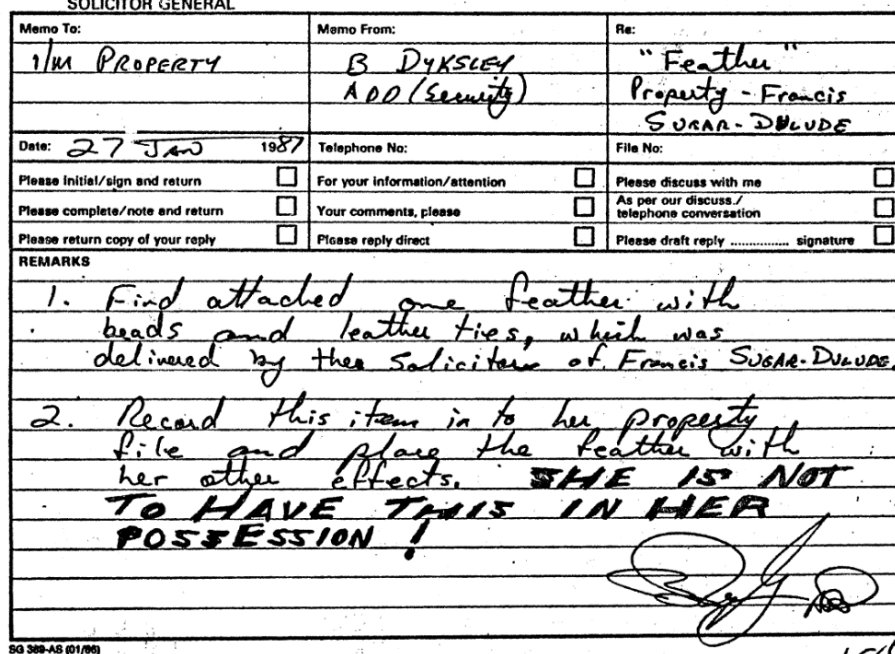 SOLICITOR GENERAL
Memo To: Memo From: Re:
I/M PROPERTY B DYKSLEY "Feather"
ADO (Security) Property - Francis
SUGAR-DULUDE
Date: 27 JAN 1987 Telephone No: File No:
Please initial/sign and return For your information/attention Please discuss with me
Please complete/note and return Your comments, please As per our discuss./
telephone conversation
Please return copy of your reply Please reply direct Please draft reply ............... signature
REMARKS
1. Find attached one feather with
beads and leather ties, which was
delivered by the Solicitors of Francis SUGAR-DULUDE.
2. Record this item in to her property
file and place the feather with
her other effects. SHE IS NOT
TO HAVE THIS IN HER
POSSESSION !
SG 389-AS (01/86)